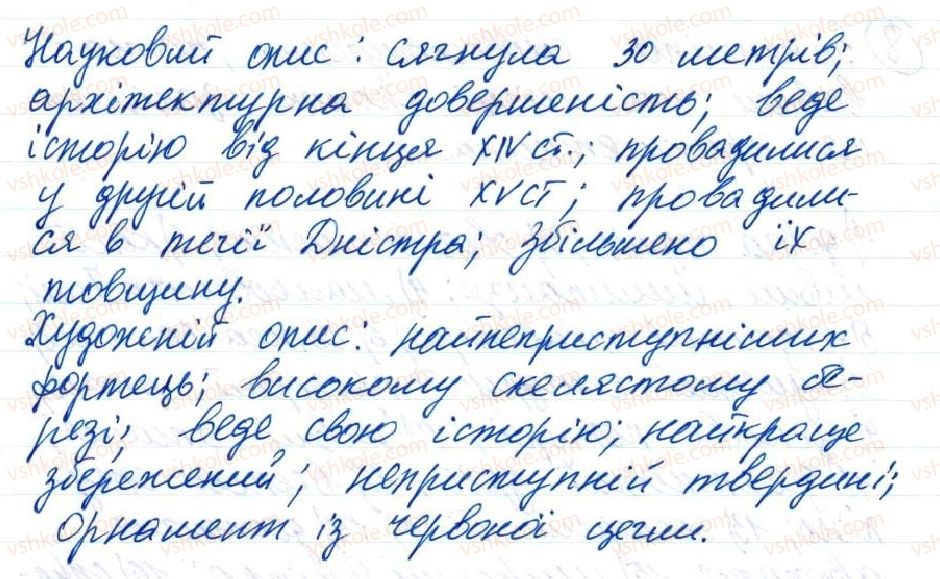 Науковий опис: сягнула 30 метрів;
архітектурна довершеність; веде
історію від кінця XIV ст.; провадилися
у другій половині XV ст; провадили-
ся в течії Дністра; збільшено їх
товщину.
Художній опис: найнеприступніших
фортець; високому скелястому бе-
резі; веде свою історію; найкраще
збережений; неприступній твердині;
орнамент із червоної цегли.